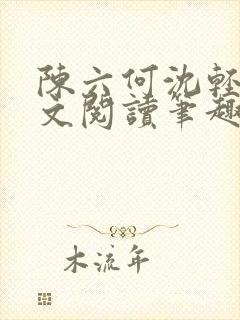 陳六何沈輕
文閱讀筆趣
木流年